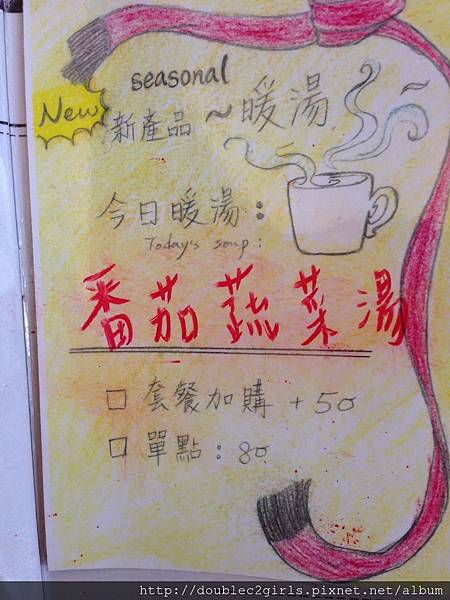 seasonal
New
新產品～暖湯～
今日暖湯：
Today's soup:
番茄蔬菜湯
□ 套餐加購 +50
□ 單點：80
http://doublec2girls.pixnet.net/album